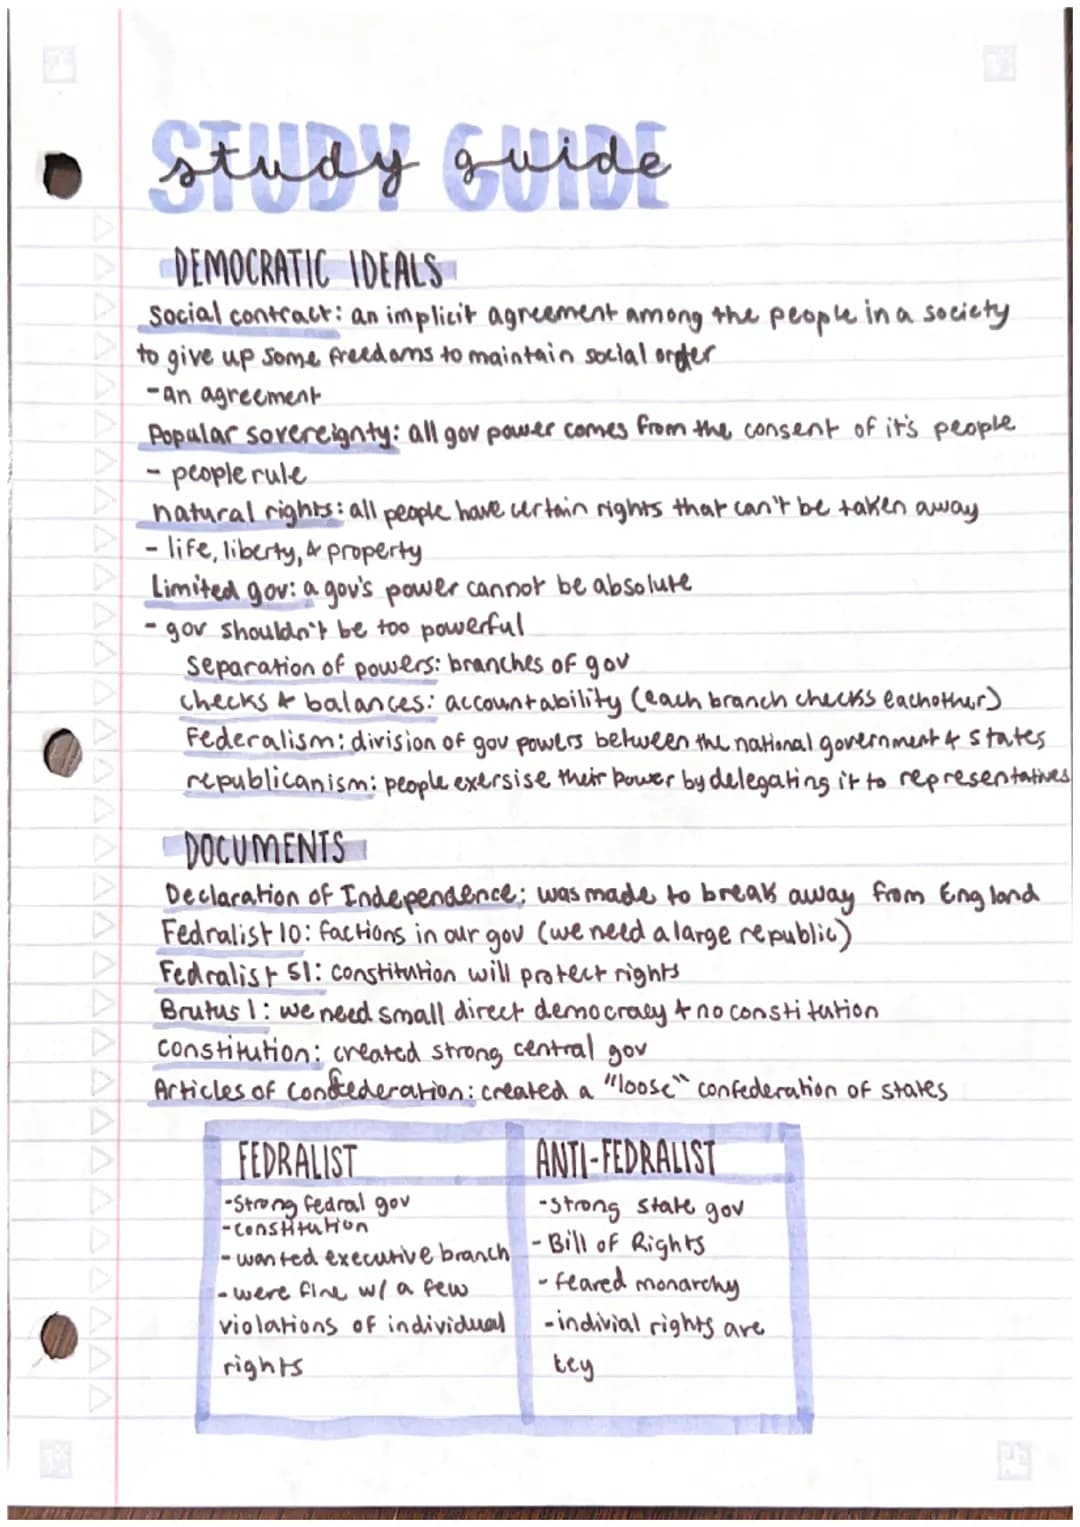 STUDY GUIDE
study guide
DEMOCRATIC IDEALS
Social contract: an implicit agreement among the people in a society
to give up some freedoms to maintain social order
-an agreement
Popular sovereignty: all gov power comes from the consent of it's people
- people rule
natural rights: all people have certain rights that can't be taken away
- life, liberty, & property
Limited gov: a gov's power cannot be absolute
- gov shouldn't be too powerful
Separation of powers: branches of gov
checks & balances: accountability (each branch checks eachother)
Federalism: division of gov powers between the national government & states
republicanism: people exersise their power by delegating it to representatives
DOCUMENTS
Declaration of Independence: was made to break away from England
Fedralist 10: factions in our gov (we need a large republic)
Fedralist 51: constitution will protect rights
Brutus 1: we need small direct democracy & no constitution
constitution: created strong central gov
Articles of Confederation: created a "loose" confederation of states
FEDRALIST
-Strong fedral gov
-constitution
- wanted executive branch
- were fine w/ a few
violations of individual
rights
ANTI-FEDRALIST
-Strong state gov
- Bill of Rights
- feared monarchy
-indivial rights are
key